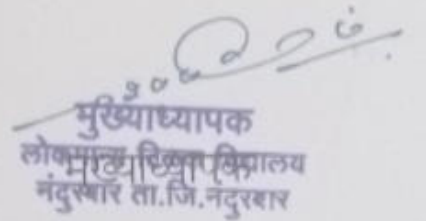 मुख्याध्यापक
लोकमान्य विद्यालय
मुख्याध्यापक
नंदुरबार ता.जि.नंदुरबार